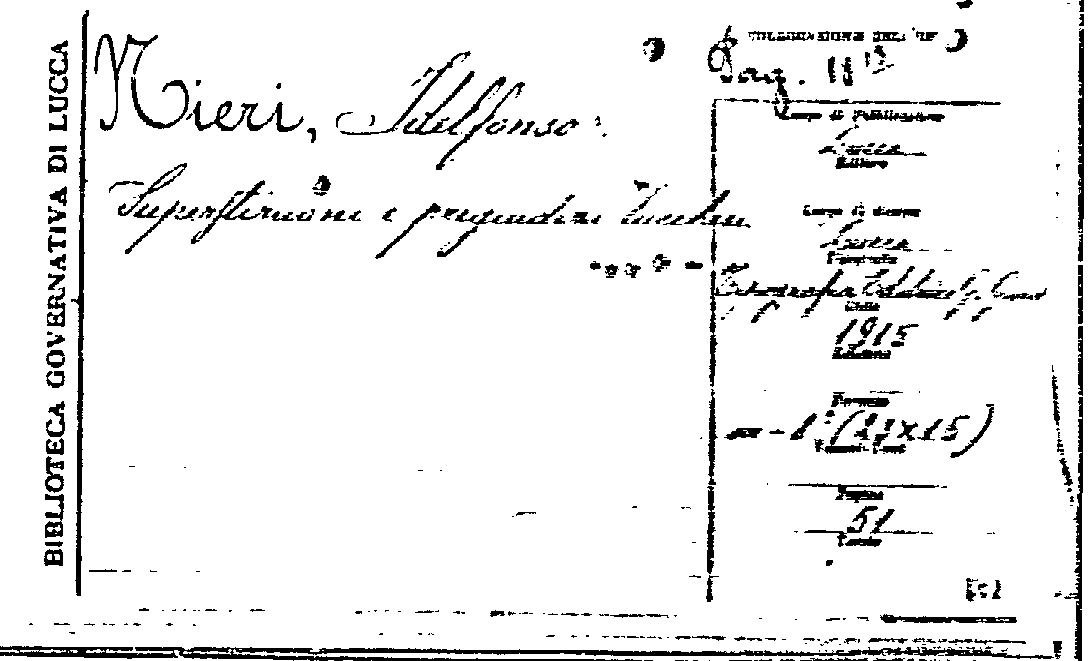 BIBLIOTECA GOVERNATIVA DI LUCCA
Nieri, Idelfonso
Superstizioni e pregiudizi lucchesi
COLLOCAZIONE DELL'OP
Luogo di Pubblicazione
Lucca
Editore
Luogo di stampa
Lucca
Tipografia
1915
Edizione
Formato
(21x15)
Pagine
51
Tavole